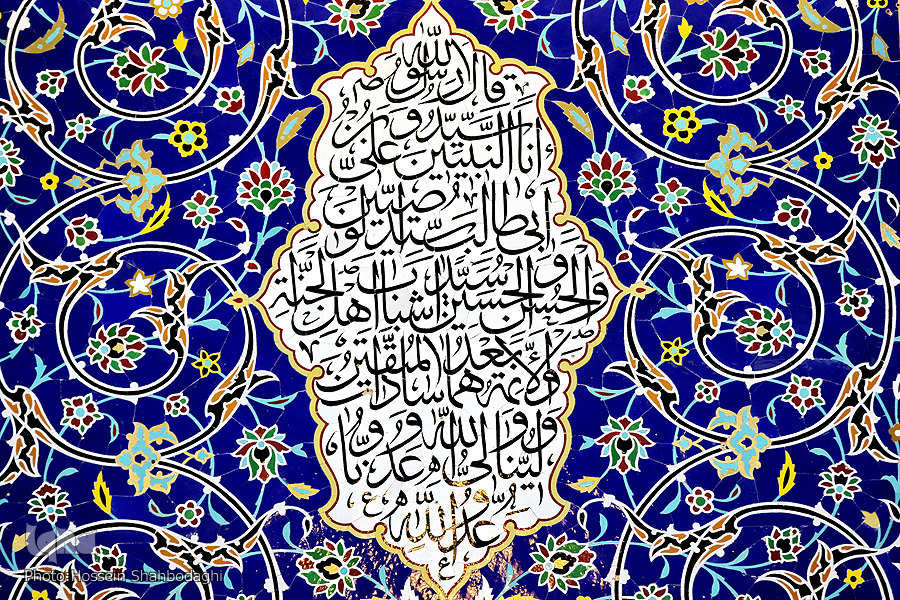 قال رسول الله ص
أنا سيد النبيين و علي بن
أبي طالب سيد الوصيين
و الحسن و الحسين سيدا شباب أهل الجنة
و الأئمة بعدهما سادات المتقين
ولينا ولي الله و عدونا
عدو الله
Photo:Hossein Shahbodaghi